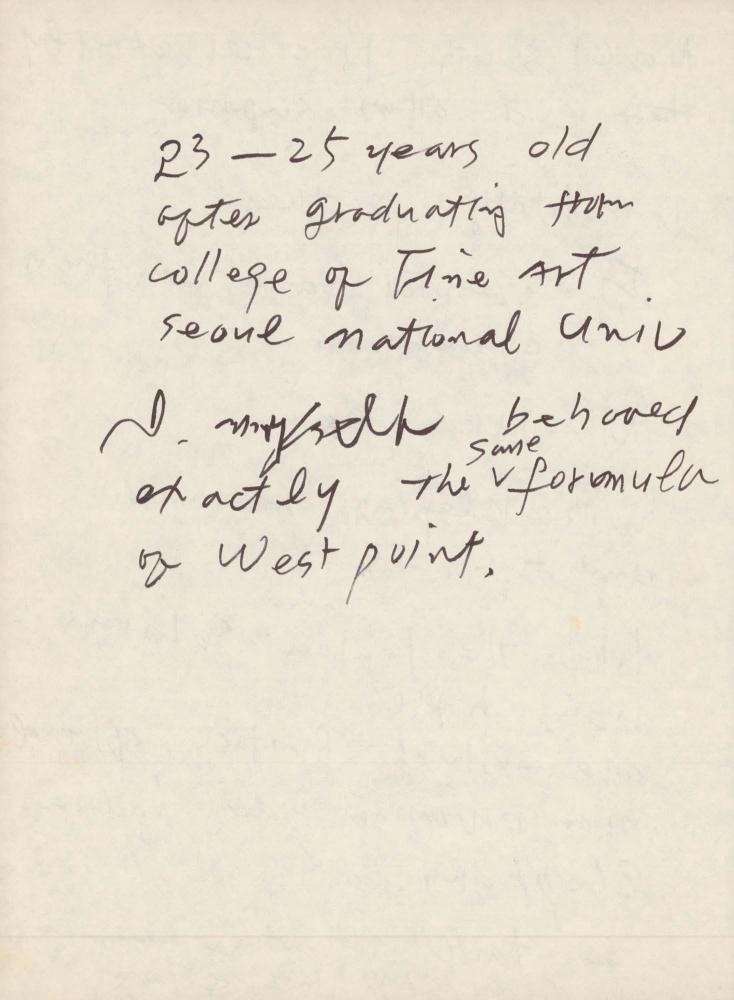 23 — 25 years old
after graduating from
college of Fine Art
seoul national Univ
I. myself behaved
exactly The same formula
of West point.